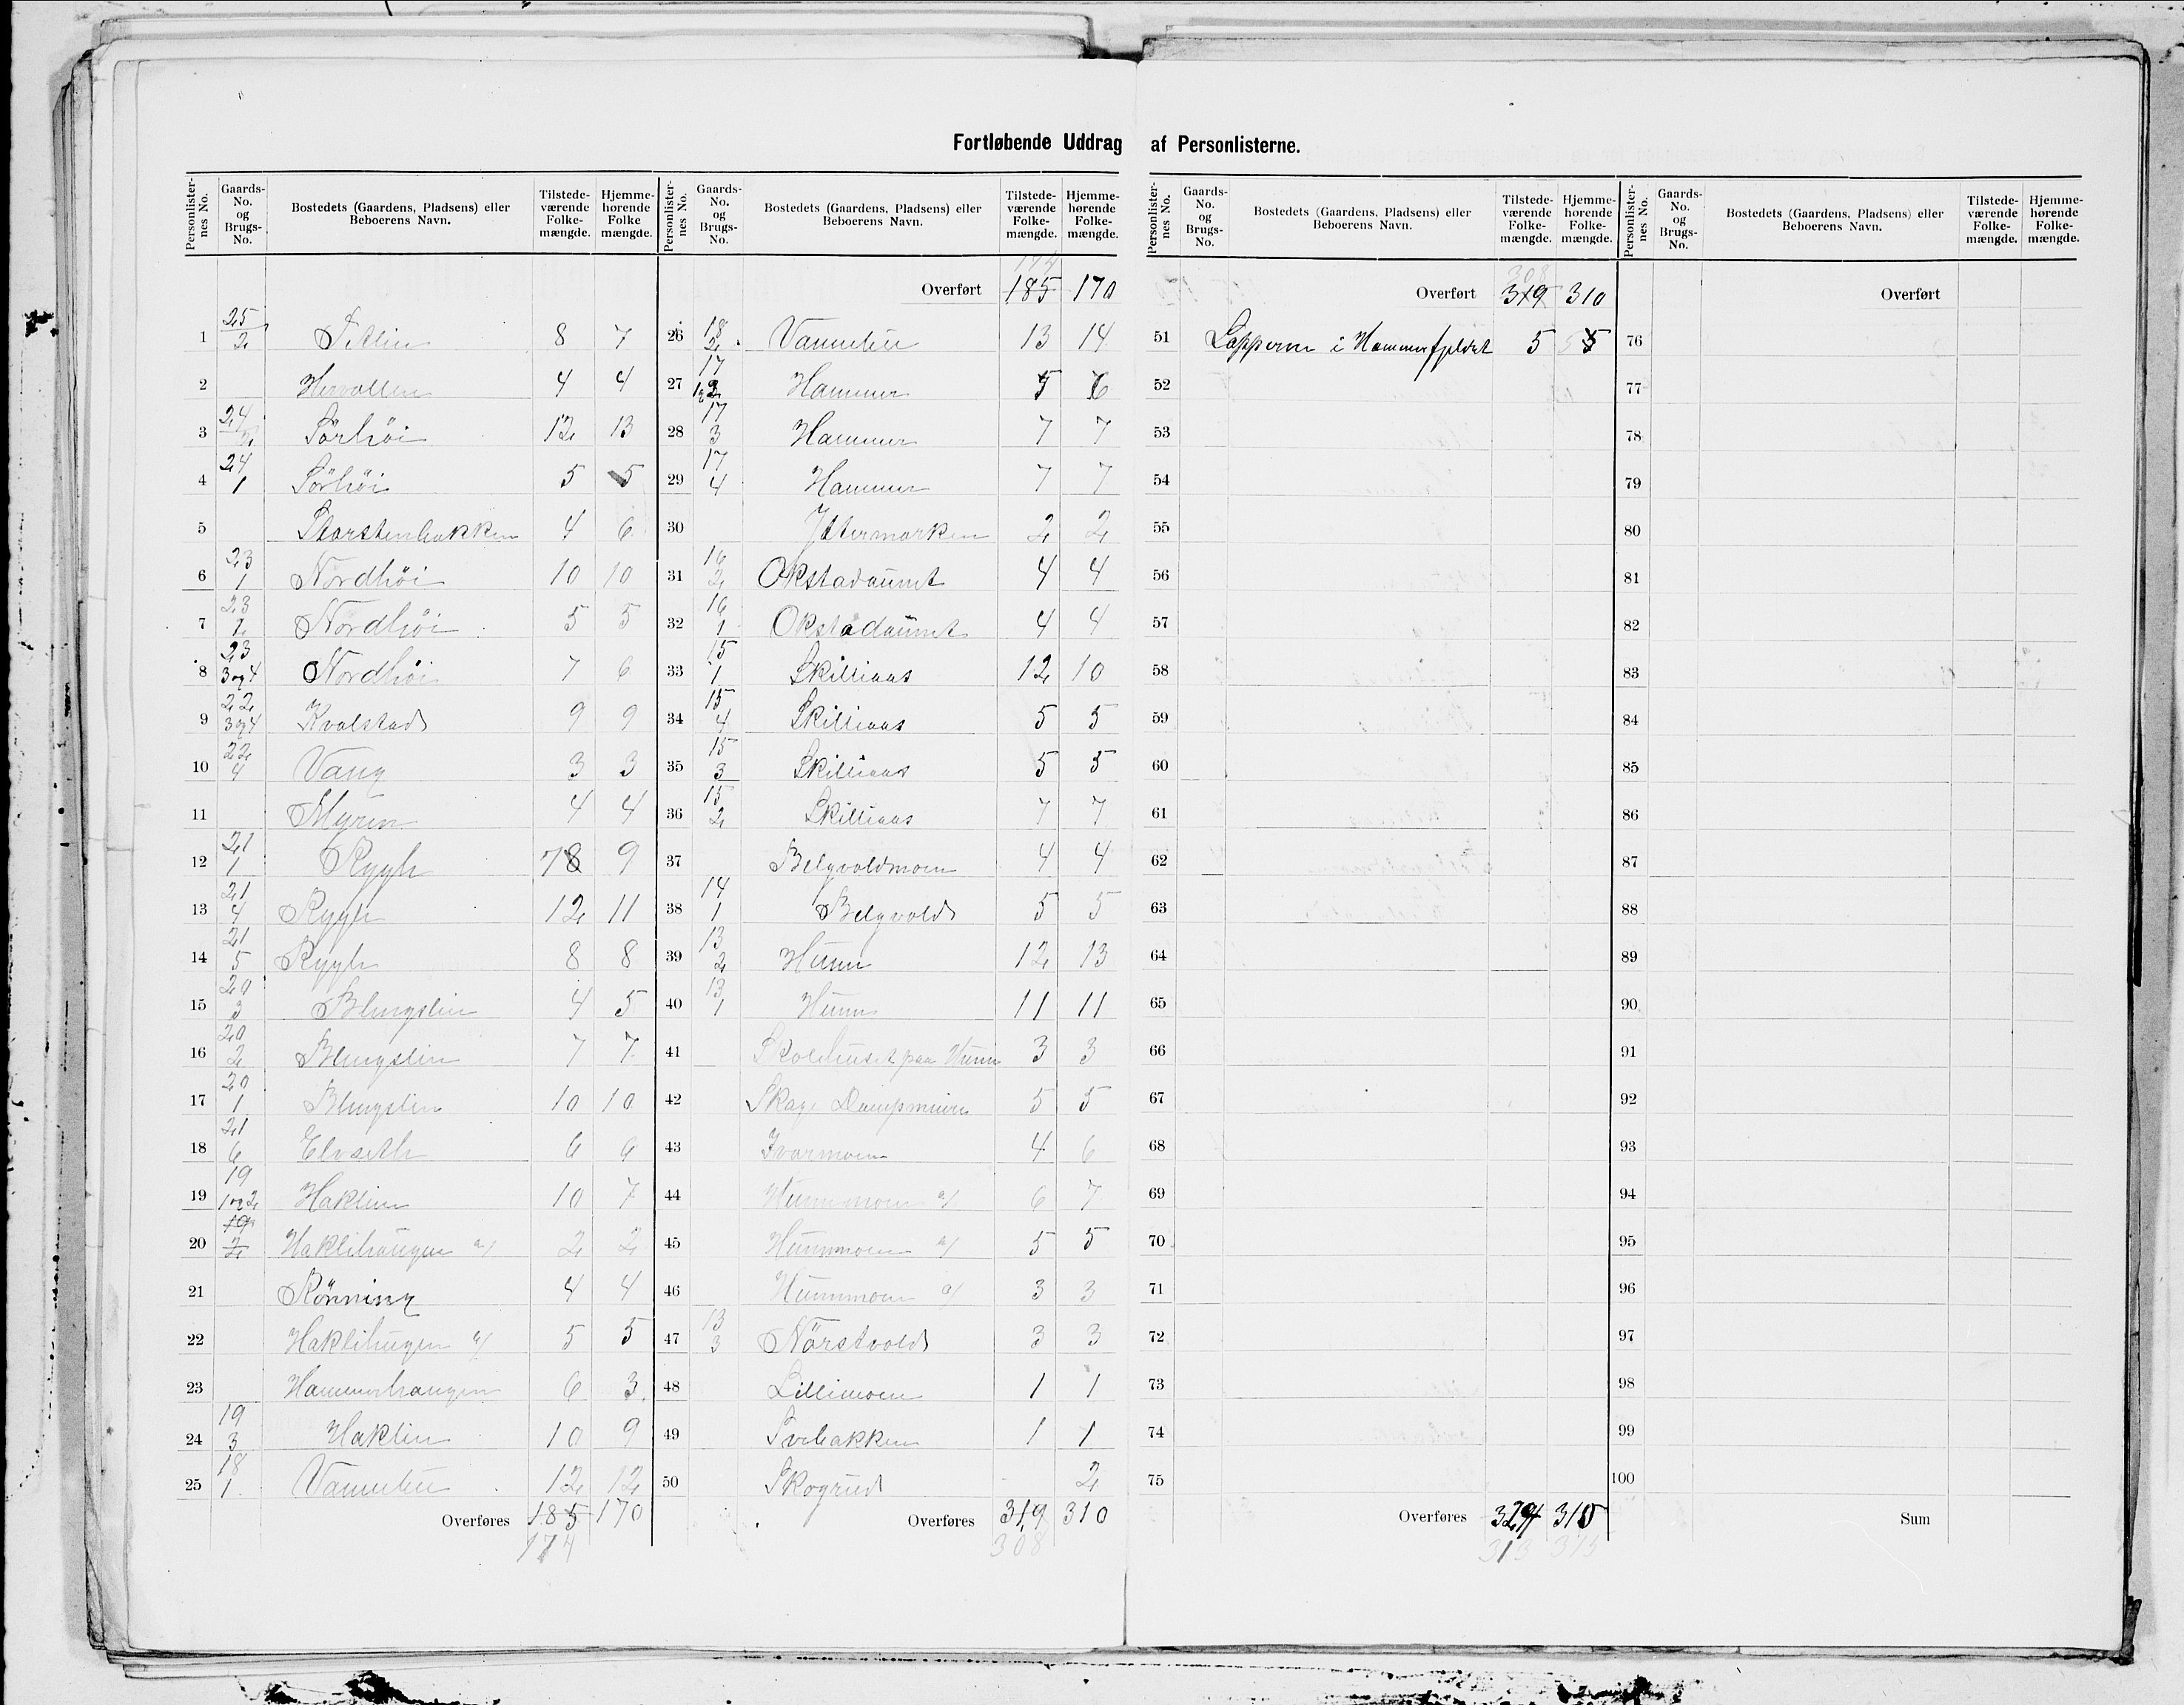 Fortløbende Uddrag af Personlisterne.
Personlisternes No. | Gaards-No. og Brugs-No. | Bostedets (Gaardens, Pladsens) eller Beboerens Navn. | Tilstedeværende Folkemængde. | Hjemmehørende Folkemængde.
1 | 25/2 | | 8 | 7
2 | | Hervollen | 4 | 4
3 | 24/2 | Sörhöi | 12 | 13
4 | 24/1 | Sörhöi | 5 | 5
5 | | Storstenbakken | 4 | 6
6 | 23/1 | Nordhöi | 10 | 10
7 | 23/2 | Nordhöi | 5 | 5
8 | 23/3 og 4 | Nordhöi | 7 | 6
9 | 22/3 og 4 | Kvalstad | 9 | 9
10 | 22/4 | Vang | 3 | 3
11 | | Myren | 4 | 4
12 | 21/1 | Rygh | 7 8 | 9
13 | 21/4 | Rygh | 12 | 11
14 | 21/5 | Rygh | 8 | 8
15 | 20/3 | Blengslin | 4 | 5
16 | 20/2 | Blengslin | 7 | 7
17 | 20/1 | Blengslin | 10 | 10
18 | 21/6 | Elvseth | 6 | 6
19 | 19/1 og 2 | Haklien | 10 | 7
20 | 19/2 | Haklihaugen a/ | 2 | 2
21 | | Rönning | 4 | 4
22 | | Haklihugen a/ | 5 | 5
23 | | Hammerhaugen | 6 | 3
24 | 19/3 | Haklien | 10 | 9
25 | 18/1 | Vannebu | 12 | 12
Overføres 185 170
174
174
Overført 185 170
26 | 18/2 | Vannebu | 13 | 14
27 | 17 | Hammer | 5 | 6
28 | 17/3 | Hammer | 7 | 7
29 | 17/4 | Hammer | 7 | 7
30 | | Yttermarken | 2 | 2
31 | 16/2 | Okstadaunet | 4 | 4
32 | 16/1 | Okstadaunet | 4 | 4
33 | 15/1 | Skilliaas | 12 | 10
34 | 15/4 | Skilliaas | 5 | 5
35 | 15/3 | Skilliaas | 5 | 5
36 | 15/2 | Skilliaas | 7 | 7
37 | | Belgvoldmoen | 4 | 4
38 | 14/1 | Belgvold | 5 | 5
39 | 13/2 | Hunn | 12 | 13
40 | 13/1 | Hunn | 11 | 11
41 | | Skolehuset paa Hunn | 3 | 3
42 | | Skage Dampmeieri | 5 | 5
43 | | Ivarmoen | 4 | 6
44 | | Hunnmoen a/ | 6 | 7
45 | | Hunnmoen a/ | 5 | 5
46 | | Hunnmoen a/ | 3 | 3
47 | 13/3 | Nörstvold | 3 | 3
48 | | Lillemoen | 1 | 1
49 | | | 1 | 1
50 | | Skogrud | | 2
Overføres 319 310
308
Personlisternes No. | Gaards-No. og Brugs-No. | Bostedets (Gaardens, Pladsens) eller Beboerens Navn. | Tilstedeværende Folkemængde. | Hjemmehørende Folkemængde.
308
Overført 319 310
51 | Lapperne i Hammerfjeldet | 5 | 5
52
53
54
55
56
57
58
59
60
61
62
63
64
65
66
67
68
69
70
71
72
73
74
75
Overføres 324 315
313 315
Overført
76
77
78
79
80
81
82
83
84
85
86
87
88
89
90
91
92
93
94
95
96
97
98
99
100
Sum